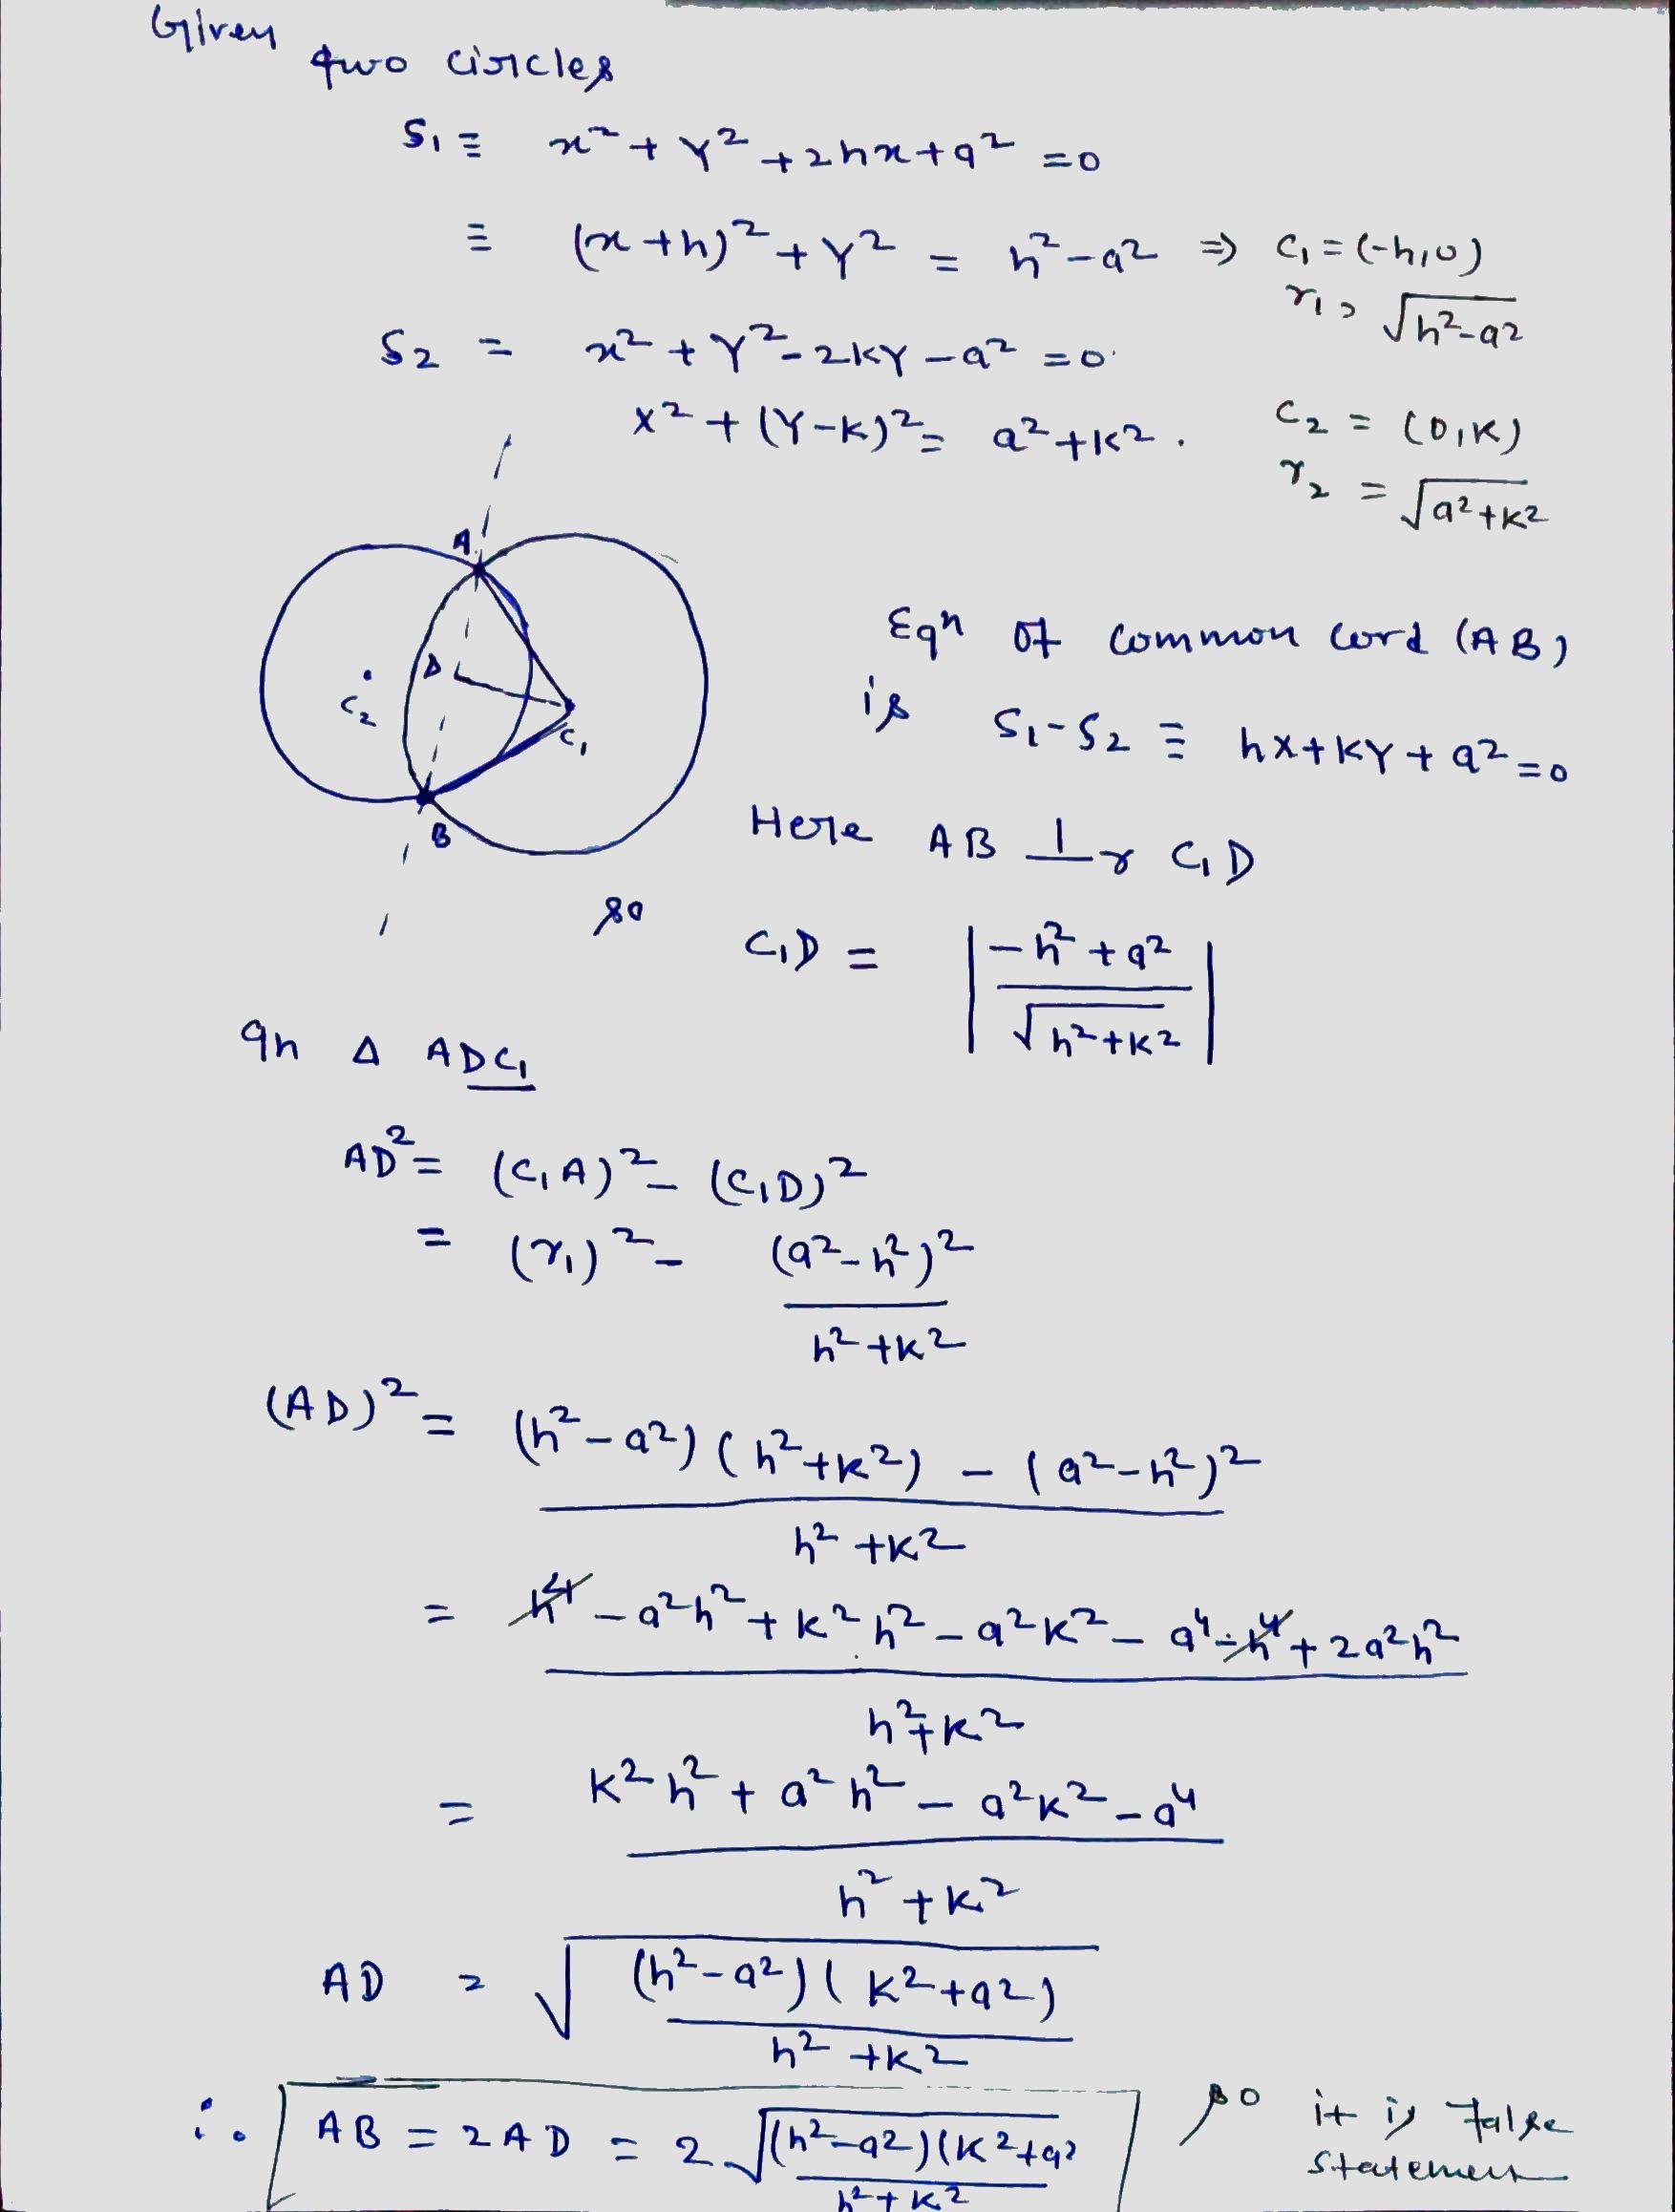 Given two circles
S₁ ≡ x² + y² + 2hx + a² = 0
≡ (x + h)² + y² = h² - a² ⇒ C₁ = (-h, 0)
r₁ = √(h² - a²)
S₂ = x² + y² - 2ky - a² = 0
x² + (y - k)² = a² + k². C₂ = (0, k)
r₂ = √(a² + k²)
A
D
C₂
C₁
B
Eqn of common cord (AB)
is S₁ - S₂ ≡ hx + ky + a² = 0
Here AB ⊥r C₁D
so C₁D = |(-h² + a²) / √(h² + k²)|
In Δ ADC₁
AD² = (C₁A)² - (C₁D)²
= (r₁)² - (a² - h²)² / (h² + k²)
(AD)² = ((h² - a²)(h² + k²) - (a² - h²)²) / (h² + k²)
= (h⁴ - a²h² + k²h² - a²k² - a⁴ - h⁴ + 2a²h²) / (h² + k²)
= (k²h² + a²h² - a²k² - a⁴) / (h² + k²)
AD = √((h² - a²)(k² + a²) / (h² + k²))
∴ AB = 2AD = 2√((h² - a²)(k² + a² / (h² + k²)) so it is false
statement